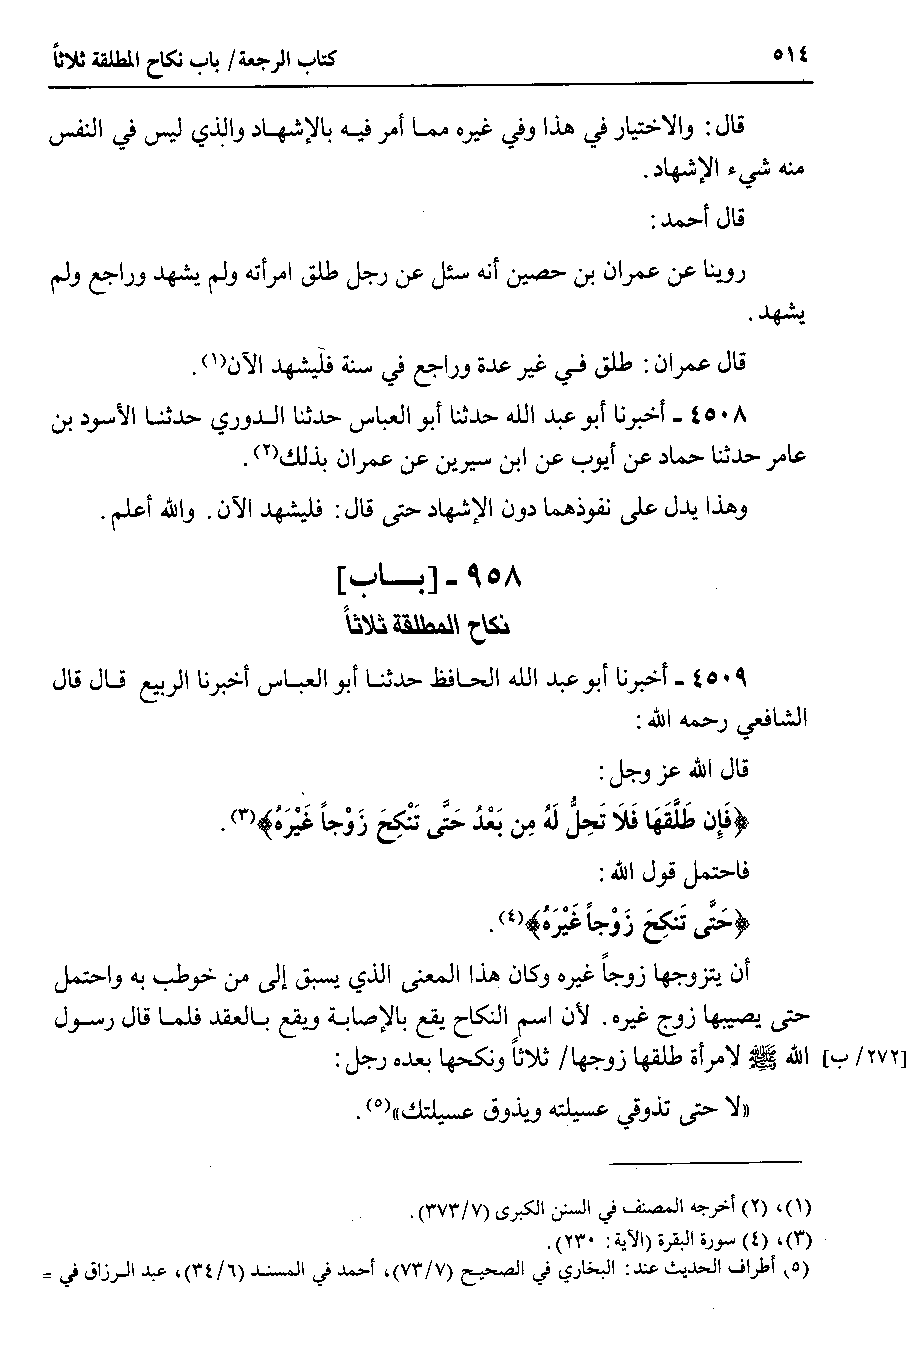 ٥١٤
كتاب الرجعة/ باب نكاح المطلقة ثلاثاً
قال: والاختيار في هذا وفي غيره مما أمر فيه بالإشهاد والذي ليس في النفس
منه شيء الإشهاد.
قال أحمد:
روينا عن عمران بن حصين أنه سئل عن رجل طلق امرأته ولم يشهد وراجع ولم
يشهد.
قال عمران: طلق في غير عدة وراجع في سنة فليشهد الآن(١).
٤٥٠٨ ـ أخبرنا أبو عبد الله حدثنا أبو العباس حدثنا الدوري حدثنا الأسود بن
عامر حدثنا حماد عن أيوب عن ابن سيرين عن عمران بذلك(٢).
وهذا يدل على نفوذهما دون الإشهاد حتى قال: فليشهد الآن. والله أعلم.
٩٥٨ ـ [باب]
نكاح المطلقة ثلاثاً
٤٥٠٩ ـ أخبرنا أبو عبد الله الحافظ حدثنا أبو العباس أخبرنا الربيع قال قال
الشافعي رحمه الله:
قال الله عز وجل:
﴿فَإِن طَلَّقَهَا فَلَا تَحِلُّ لَهُ مِن بَعْدُ حَتَّى تَنْكِحَ زَوْجاً غَيْرَهُ﴾(٣).
فاحتمل قول الله:
﴿حَتَّى تَنكِحَ زَوْجاً غَيْرَهُ﴾(٤).
أن يتزوجها زوجاً غيره وكان هذا المعنى الذي يسبق إلى من خوطب به واحتمل
حتى يصيبها زوج غيره. لأن اسم النكاح يقع بالإصابة ويقع بالعقد فلما قال رسول
[٢٧٢/ ب] الله ﷺ لامرأة طلقها زوجها/ ثلاثاً ونكحها بعده رجل:
«لا حتى تذوقي عسيلته ويذوق عسيلتك»(٥).
(١)، (٢) أخرجه المصنف في السنن الكبرى (٣٧٣/٧).
(٣)، (٤) سورة البقرة (الآية: ٢٣٠).
(٥) أطراف الحديث عند: البخاري في الصحيح (٧٣/٧)، أحمد في المسند (٣٤/٦)، عبد الرزاق في =